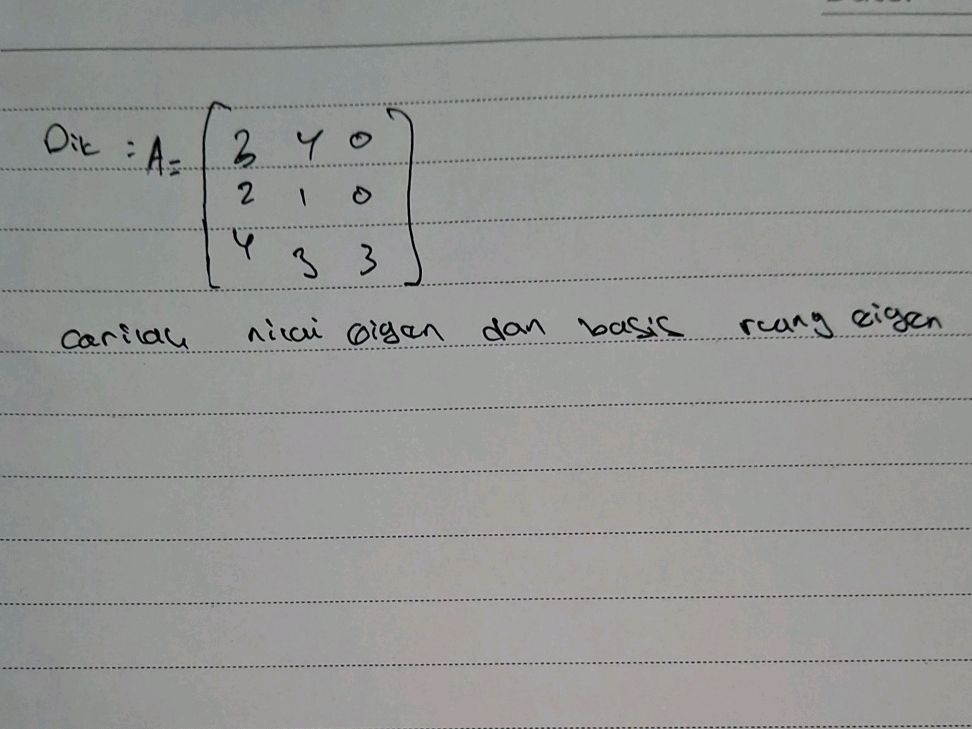 Dik : A = [ 3 4 0
2 1 0
4 3 3 ]
carilah nilai eigen dan basis ruang eigen